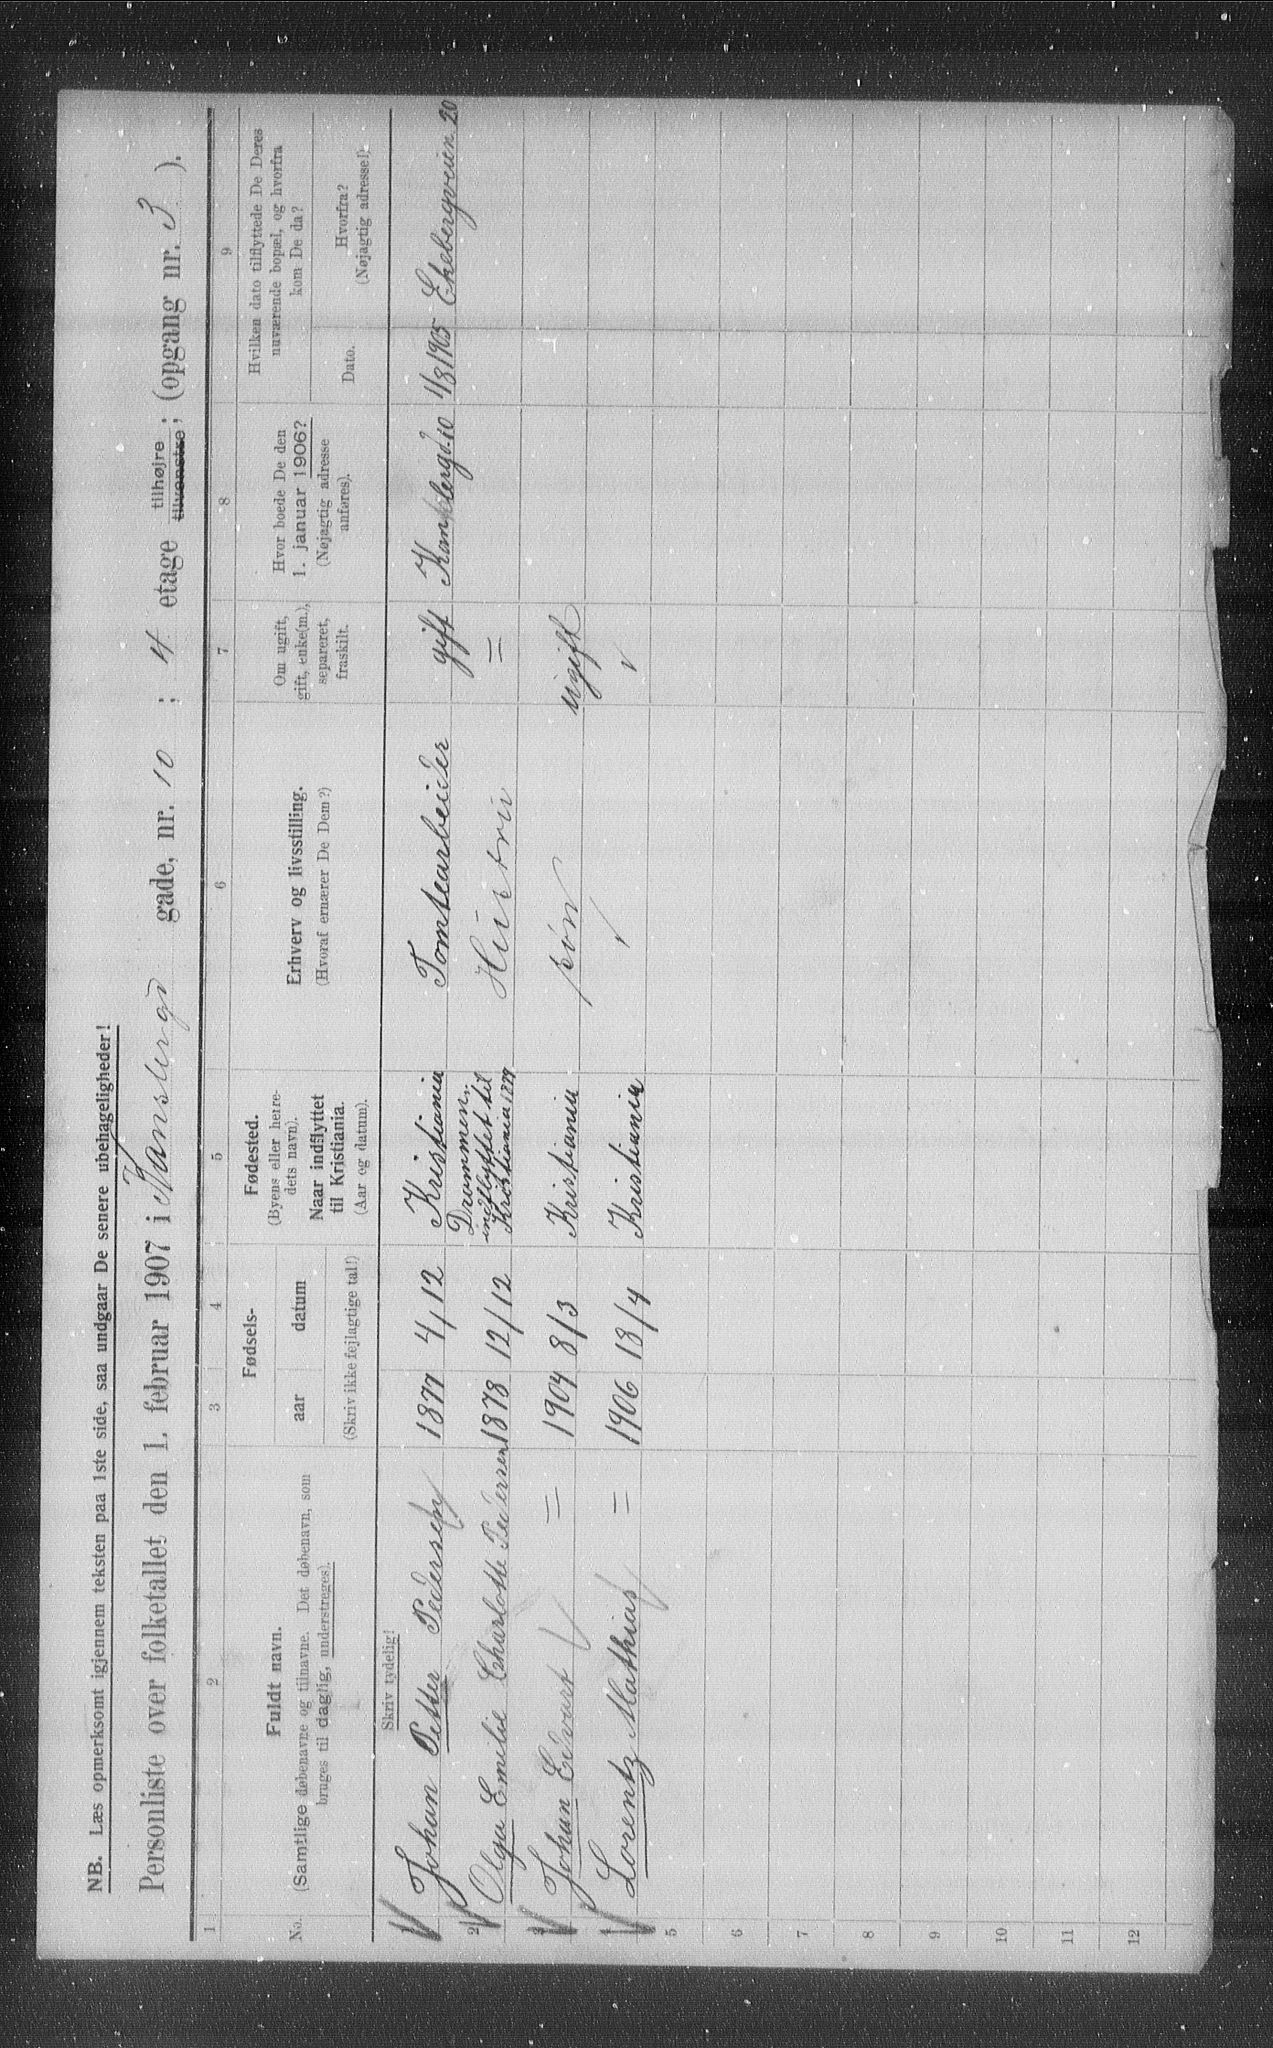 NB. Læs opmerksomt igjennem teksten paa 1ste side, saa undgaar De senere ubehageligheder!
Personliste over folketallet den 1. februar 1907 i gade, nr. 10 ; 4 etage tilhøjre tilvenstre ; (opgang nr. 3 ).
1 2 3 4 5 6 7 8 9
No. Fuldt navn. (Samtlige døbenavne og tilnavne. Det døbenavn, som bruges til daglig, understreges).
Fødsels- aar datum (Skriv ikke fejlagtige tal!)
Fødested. (Byens eller herredets navn). Naar indflyttet til Kristiania. (Aar og datum).
Erhverv og livsstilling. (Hvoraf ernærer De Dem?)
Om ugift, gift, enke(m.), separeret, fraskilt.
Hvor boede De den 1. januar 1906? (Nøjagtig adresse anføres).
Hvilken dato tilflyttede De Deres nuværende bopæl, og hvorfra kom De da?
Dato. Hvorfra? (Nøjagtig adresse!).
Skriv tydelig!
Johan Petter Pedersen 1877 4/12 Kristiania Tomtearbeider gift 1/8 1905 Ekebergveien 20
2 Olga Emilie Charlotte Pedersen 1878 12/12 Drammen, indflyttet til Kristiania 1879 Hustru =
3 Johan Edvart = 1904 8/3 Kristiania søn ugift
4 Lorentz Mathias = 1906 18/4 Kristiania
5
6
7
8
9
10
11
12